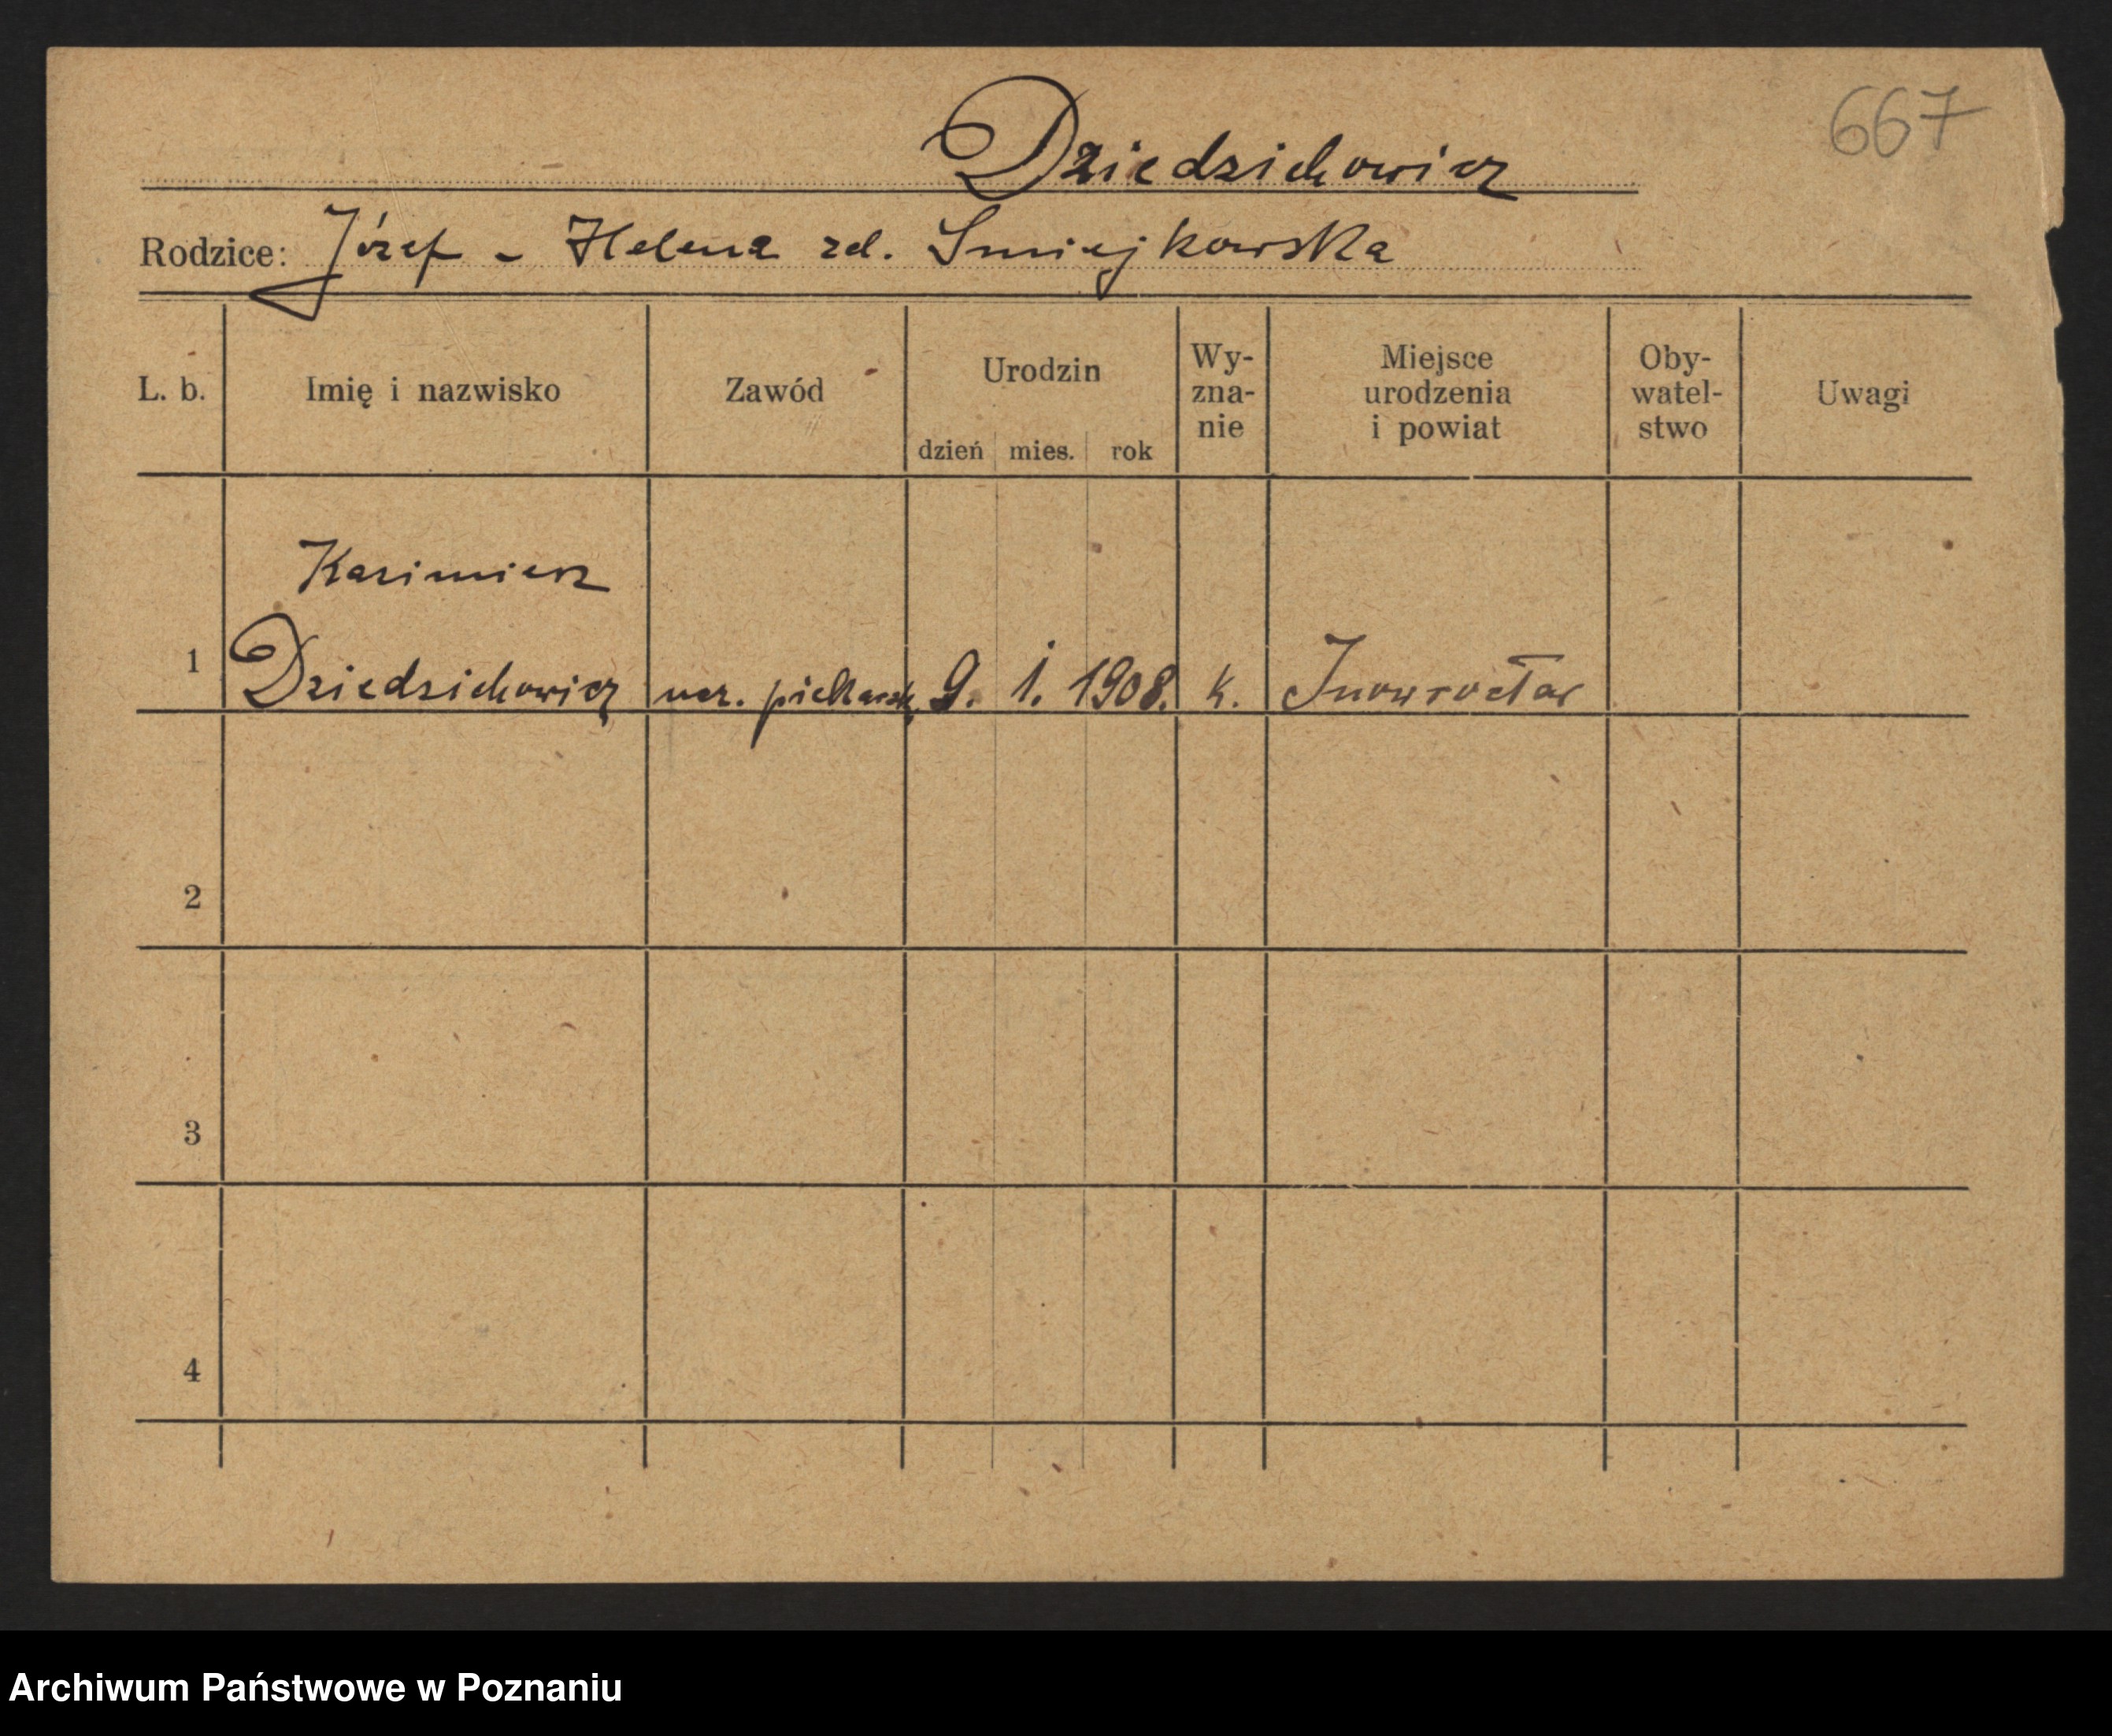 667
Dziedzichowicz
Rodzice: Józef - Helena zd. Smiejkowska
L. b. Imię i nazwisko Zawód Urodzin dzień mies. rok Wy-zna-nie Miejsce urodzenia i powiat Oby-watel-stwo Uwagi
Kazimierz
1 Dziedzichowicz ucz. piekarsk. 9. 1. 1908. k. Inowrocław
2
3
4
Archiwum Państwowe w Poznaniu